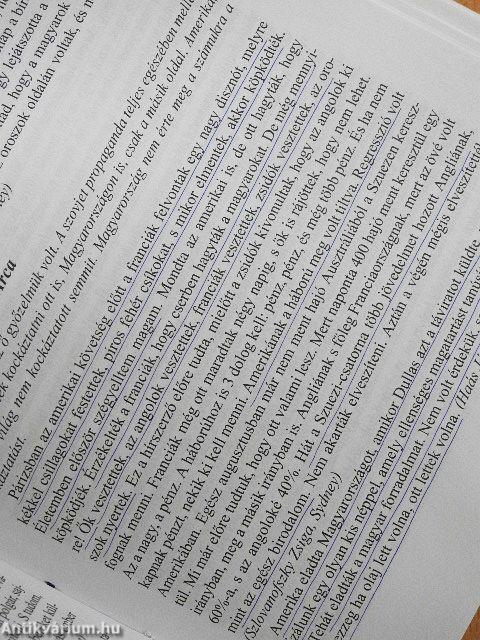 lap a bír
gy lejátszotta a
tad, hogy a magyarok
oroszok oldalán voltak, és n
y))
arca
ő győzelmük volt. A szovjet propaganda teljes egészében melle
kockoztatni ott is, Magyarországon is, csak a másik oldal. Amerika
ilág nem kockoztatott semmit. Magyarország nem érte meg a számukra a
Párizsban az amerikai követség előtt a franciák felvontak egy nagy disznót, melyre
kékkel csillagokat festettek, piros fehér csíkokat, s mikor elmentek, akkor köpködték.
Életemben először szégyelltem magam. Mondta az amerikai is, de ott hagyták, hogy
köpködjék. Érzékelték a franciák, hogy cserben hagyták a magyarokat. De még mennyi-
re! Ők vesztettek, az angolok vesztettek, franciák vesztettek, zsidók vesztettek, az oro-
szok nyertek. Ez a hírszerző előre tudta, mielőtt a zsidók kivonultak, hogy az angolok ki
fognak menni. Franciák még ott maradtak négy napig, s ők is rájöttek, hogy nem lehet.
Az a nagy, a pénz. A háborúhoz is 3 dolog kell: pénz, pénz, és még több pénz. És ha nem
kapnak pénzt, nekik ki kell menni. Amerikának a háború meg volt tiltva. Regresszió volt
Amerikában. Egész augusztusban már nem ment hajó Ausztráliából a Szuezen keresz-
tül. Mi már előre tudtuk, hogy ott valami lesz. Mert naponta 400 hajó ment keresztül egy
irányban meg a másik irányban is. Angliának s főleg Franciaországnak, mert az övé volt
60%-a, s az angoloké 40%. Hát a Szuezi-csatorna több jövedelmet hozott Angliának,
mint az egész birodalom. Nem akarták elveszíteni. Aztán a végén mégis elveszítették
(Slovanofszky Zsiga, Sydney)
Amerika eladta Magyarországot, amikor Dulles azt a táviratot küldte,
zálunk egy olyan kis néppel, amely ellenséges magatartást tanúsít
hát eladták a magyar forradalmat. Nem volt érdekük, se
zeg ha olaj lett volna, ott lettek volna.
Antikvárium.hu